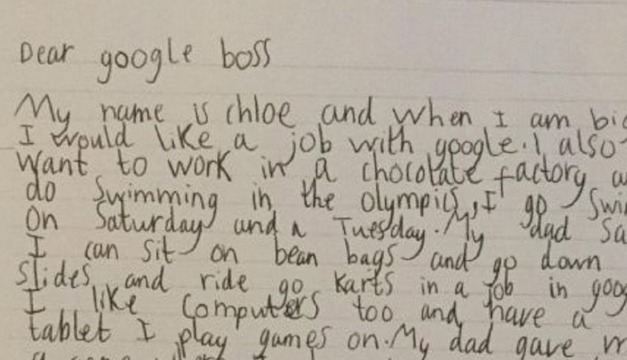 Dear google boss
My name is chloe and when I am big
I would like a job with google. I also
want to work in a chocolate factory
do swimming in the olympics, I go swim
on Saturday and a Tuesday. My dad sa
I can sit on bean bags and go down
slides and ride go karts in a job in goog
I like computers too and have a
tablet I play games on. My dad gave m